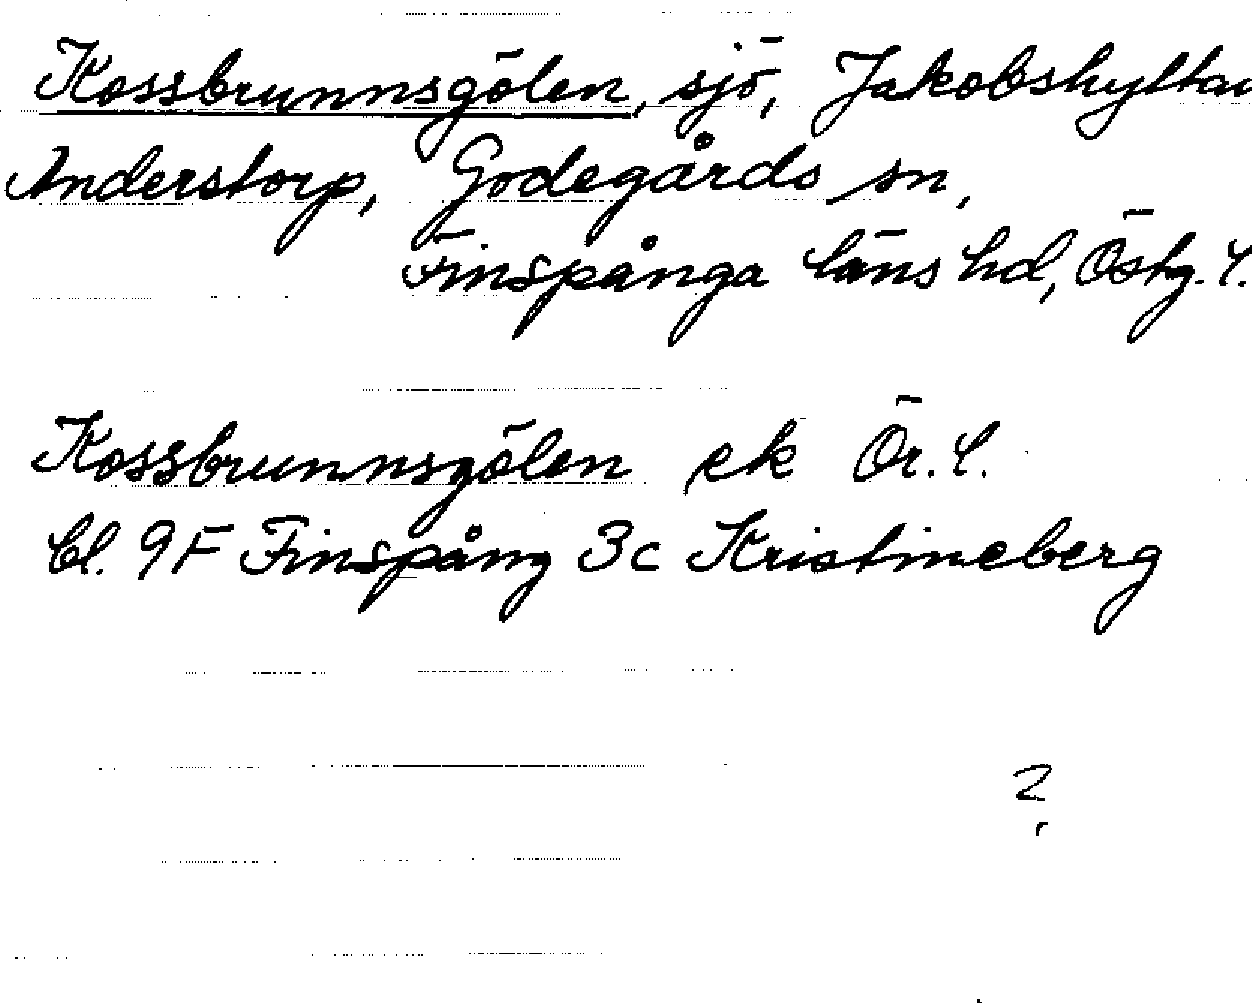 Kossbrunnsgölen, sjö, Jakobshyttan
Anderstorp, Godegårds sn,
Finspånga läns hd, Östg. l.
Kossbrunnsgölen ek Ör. l.
bl. 9F Finspång 3c Kristineberg
?